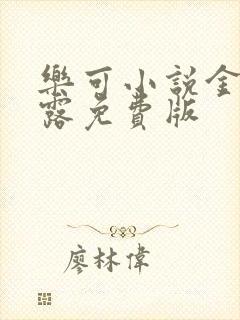 樂可小說金
露免費版
廖林偉